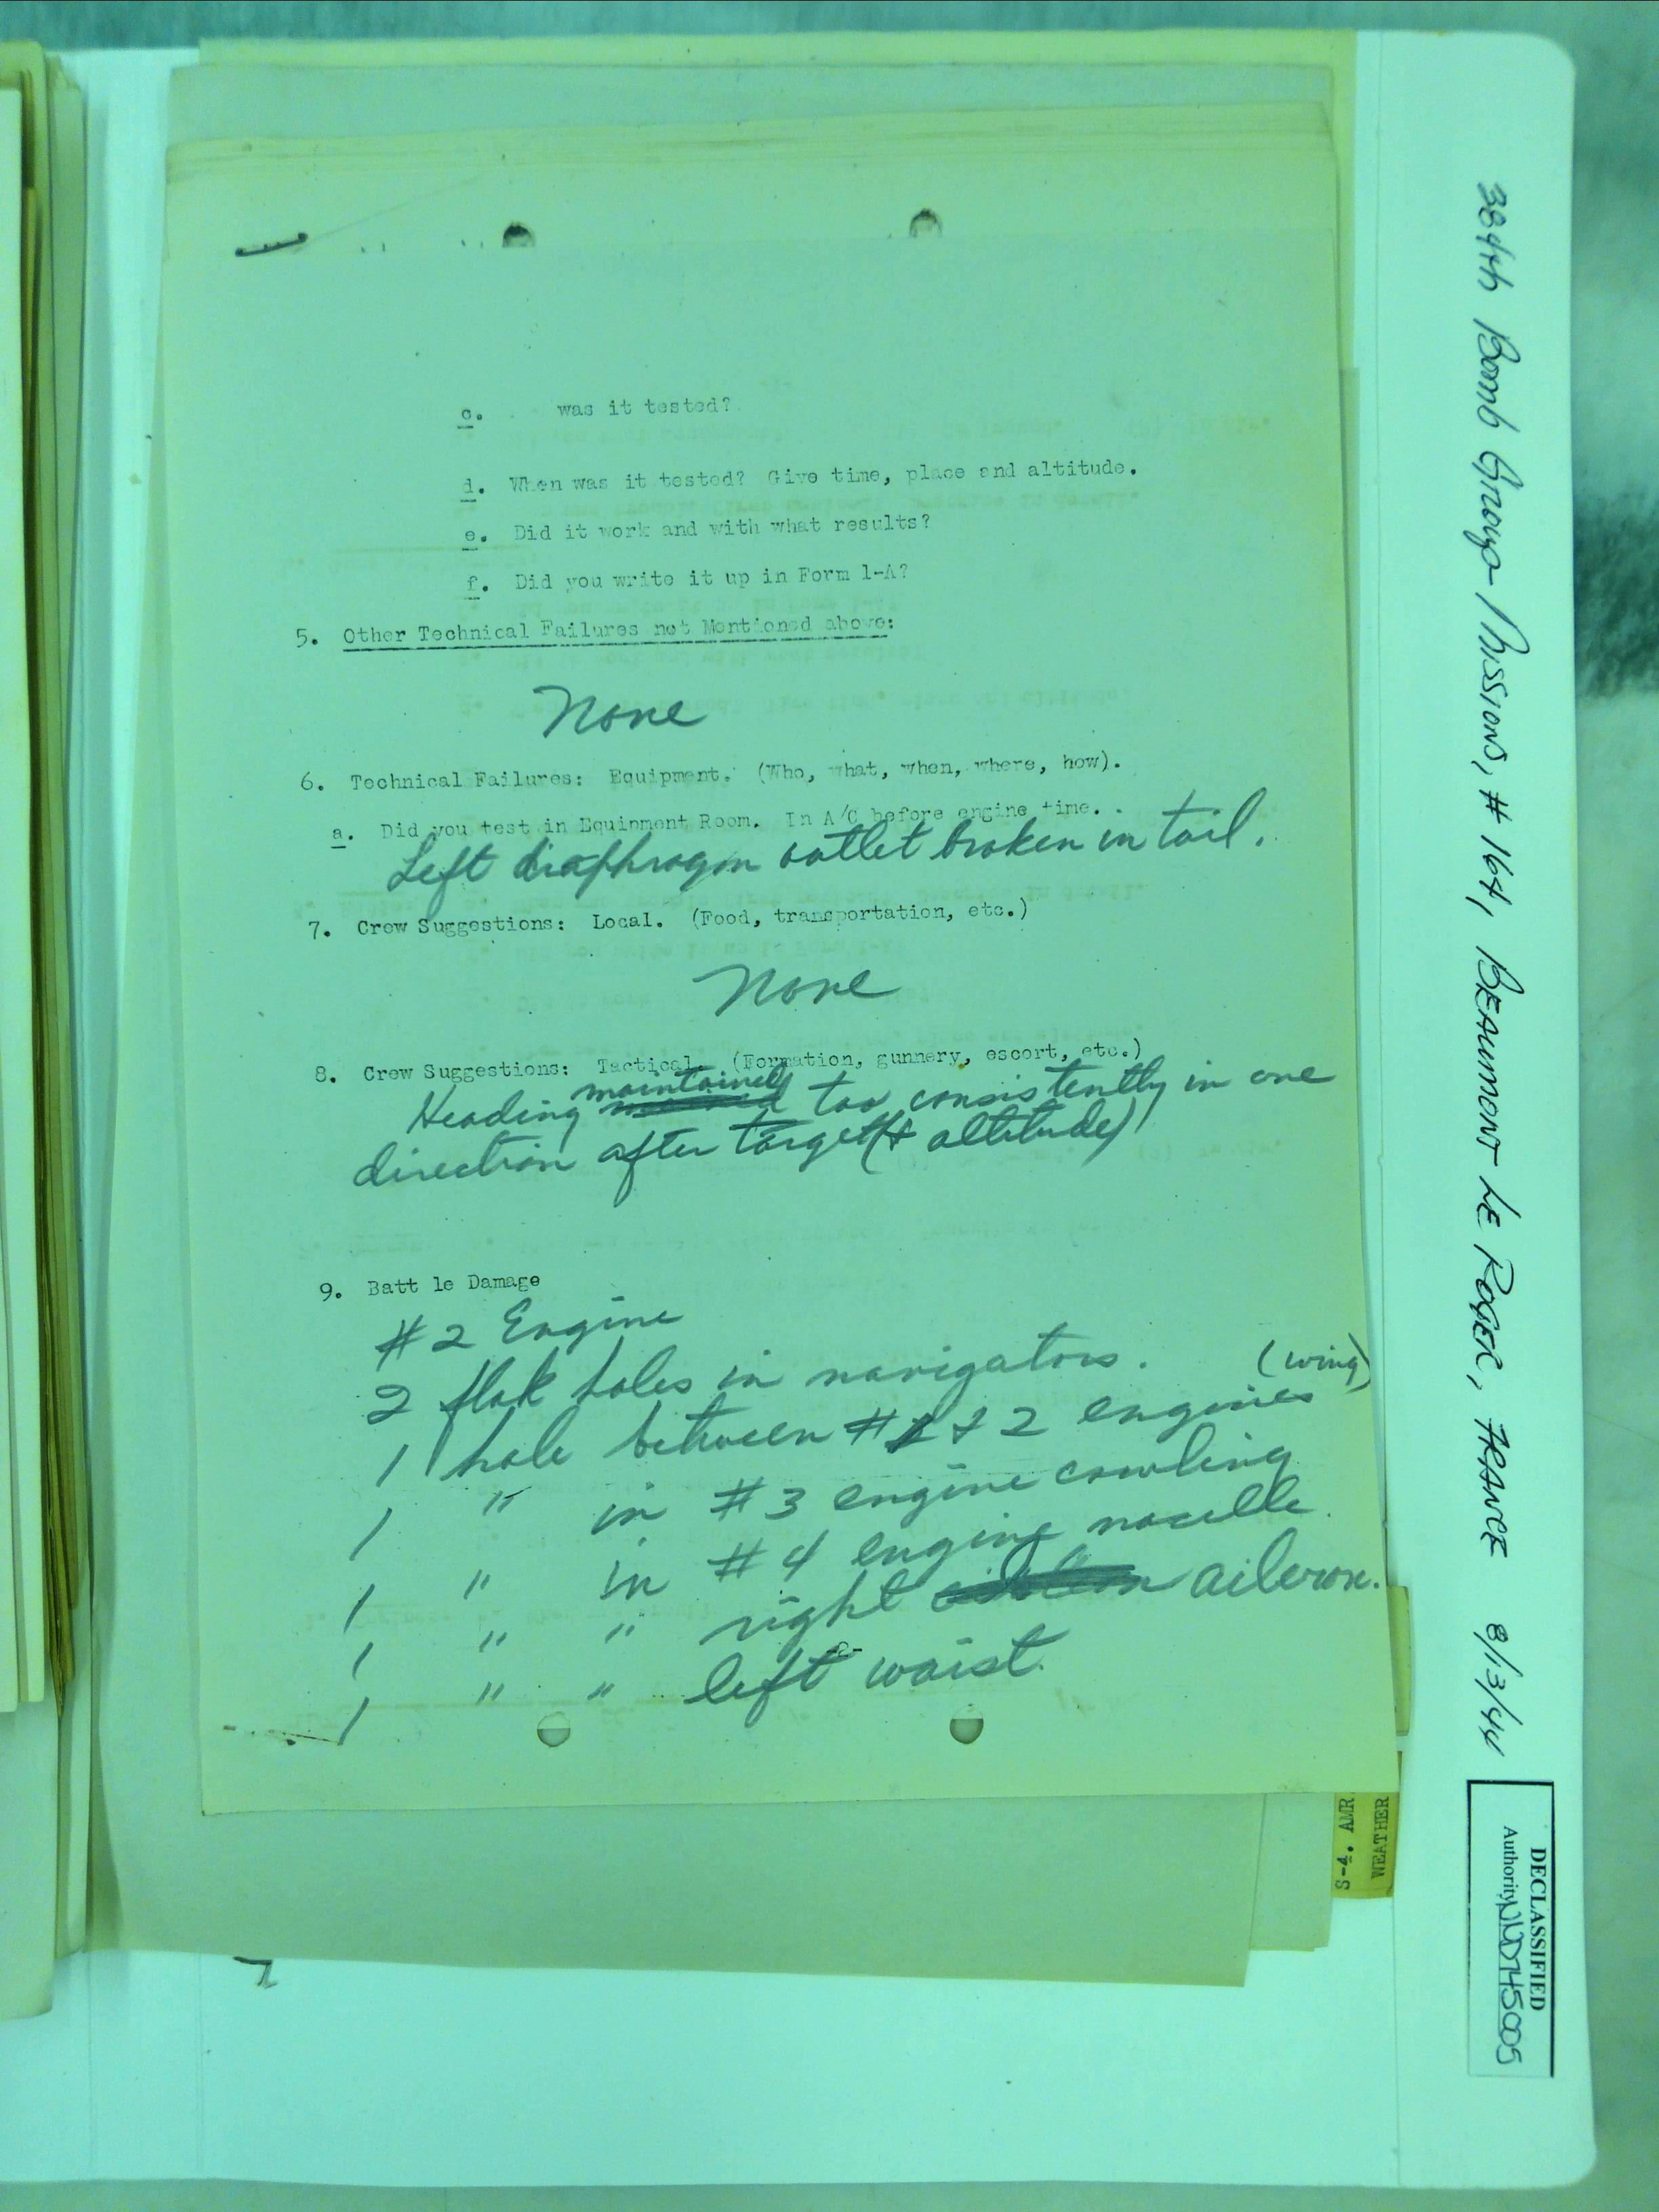 c. was it tested?
d. When was it tested? Give time, place and altitude.
e. Did it work and with what results?
f. Did you write it up in Form 1-A?
5. Other Technical Failures not Mentioned above:
None
6. Technical Failures: Equipment. (Who, what, when, where, how).
a. Did you test in Equipment Room. In A/C before engine time.
Left diaphragm outlet broken in tail.
7. Crew Suggestions: Local. (Food, transportation, etc.)
None
8. Crew Suggestions: Tactical. (Formation, gunnery, escort, etc.)
Heading maintained too consistently in one
direction after target (& altitude)
9. Batt le Damage
#2 Engine
2 flak holes in navigators. (wing)
1 hole between #1 & 2 engines
1 " in #3 engine cowling
1 " in #4 engine nacelle.
1 " " right aileron.
-2-
1 " " left waist.
384th Bomb Group Missions, #164, BEAUMONT LE ROGER, FRANCE 8/13/44
DECLASSIFIED
Authority NND745005
S-4. AMR
WEATHER